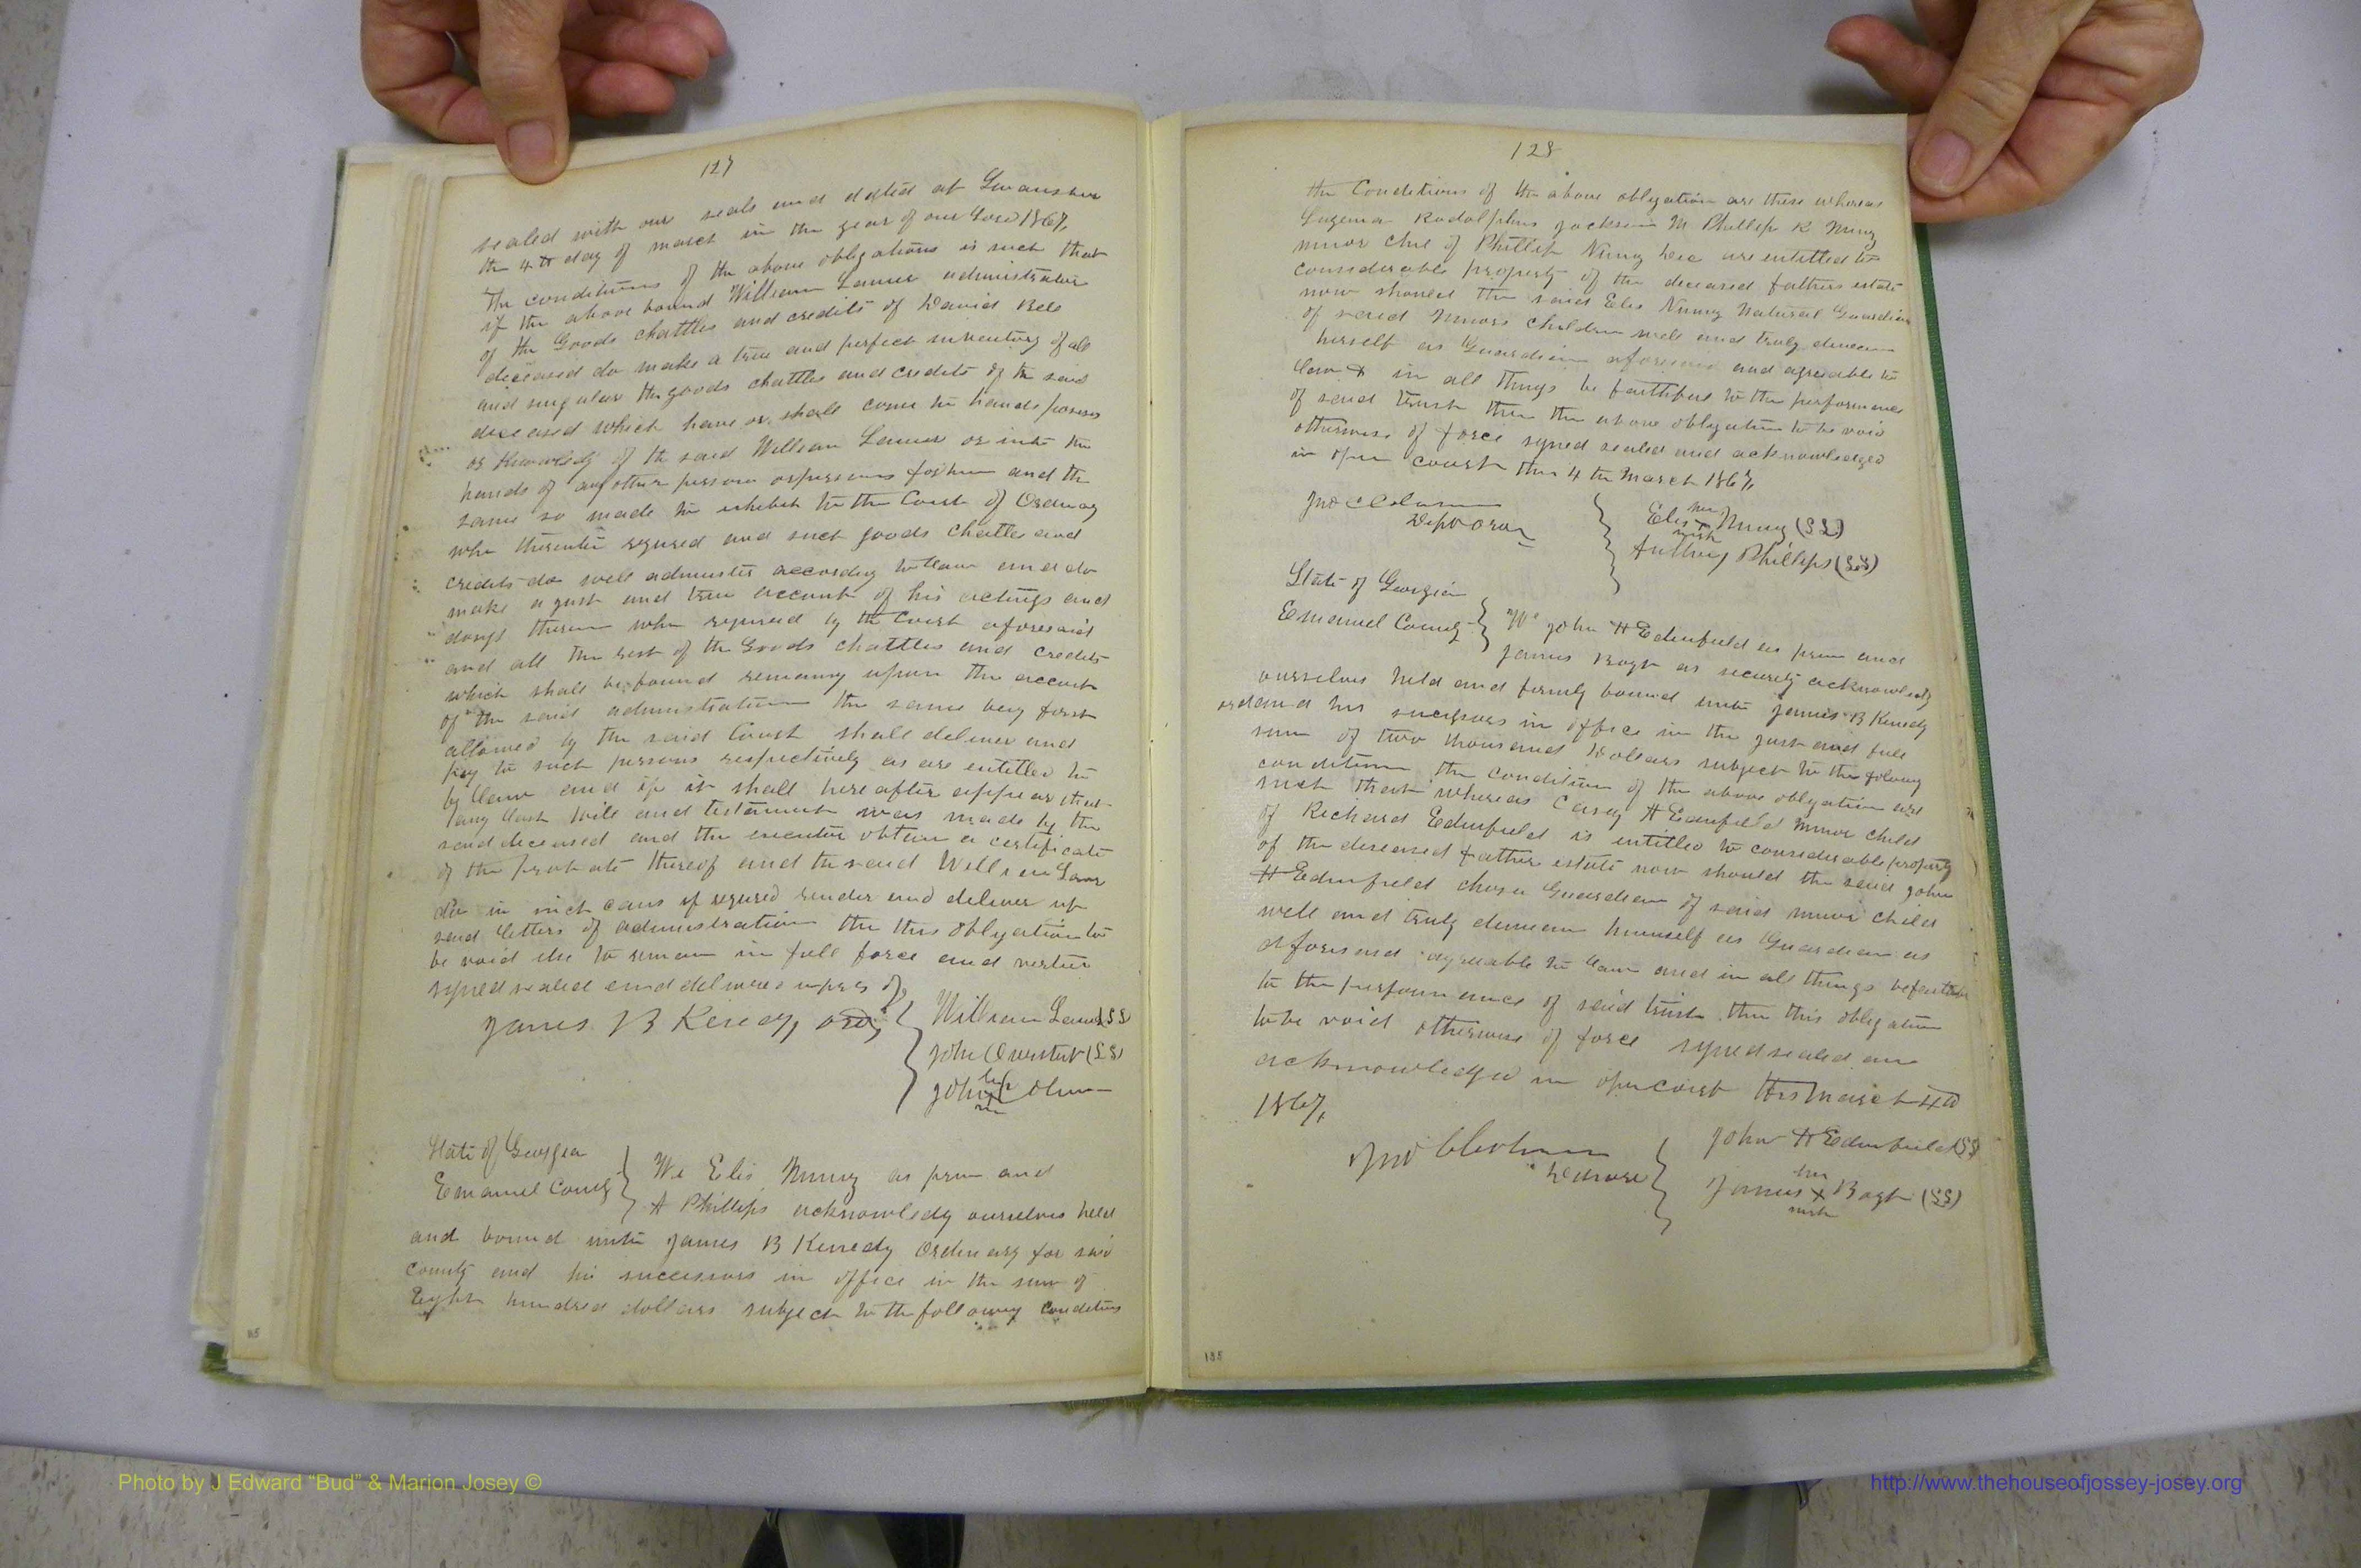 127
sealed with our seals and dated at Swansbro
the 4th day of march in the year of our Lord 1867,
The conditions of the above obligations is such that
if the above bound William Lanier administrator
of the Goods chattles and credits of David Bell
deceased do make a true and perfect inventory of all
and singular the goods chattles and credits of the said
deceased which have or shall come to hands posess
or knowledg of the said William Lanier or into the
hands of any other person or persons for him and the
same so made to exhibit to the Court of Ordinary
when thereunto required and such goods chattles and
credits do well administer according to law and do
make a just and true account of his actings and
doings therein when required by the Court aforesaid
and all the rest of the Goods chattles and credits
which shall be found remaining upon the account
of the said administration the same being first
allowed by the said Court shall deliver and
pay to such persons respectively as are entitled to
by law and if it shall here after appear that
any last will and testament was made by the
said deceased and the executor obtain a certificate
of the probate thereof and the said William Lanier
do in such case if required render and deliver up
said letters of administration the this obligation to
be void else to remain in full force and vertue
signed sealed and delivered in pres of
James B Kenedy ord
William Lanier (LS)
John C Overstreet (LS)
John C Colman
State of Georgia
Emanuel County
We Elis Nunny as prin and
A Phillips acknowledg ourselves held
and bound unto James B Kenedy Ordinary for said
county and his successors in office in the sum of
Eight hundred dollars subject to the following conditions
128
the Conditions of the above obligation are these whereas
Eugenia Rodolphus Jackson M Phillip K Nunny
minor chil of Phillip Nunny Dec are entitled to
considerable property of the deceased fathers estate
now should the said Elis Nunny Natural Guardian
of said Minors children well and truly demean
herself as Guardian aforesaid and agreable to
law & in all things be faithful to the performance
of said trust then the above obligation to be void
otherwise of force signed sealed and acknowledged
in open court this 4th March 1867,
Jno C Colman
Dept Ord
Elis her x mark Nunny (LS)
Anthony Phillips (LS)
State of Georgia
Emanuel County
We John H Edenfield as prin and
James Boyt as security acknowledg
ourselves held and firmly bound unto James B Kenedy
ord and his successors in office in the just and full
sum of two thousand Dollars subject to the folowing
condition the condition of the above obligation are
such that whereas Casey H Edenfield Minor child
of Richard Edenfield is entitled to considerable property
of the deceased father estate now should the said John
H Edenfield chosen Guardian of said minor child
well and truly demean himself as Guardian as
aforesaid agreeable to law and in all things be faithful
to the performance of said trust then this obligation
to be void otherwise of force signed sealed and
acknowledged in open court this March 4th
1867,
Jno C Colman
John H Edenfield (LS)
James his x mark Boyt (LS)
115
Photo by J Edward “Bud” & Marion Josey ©
http://www.thehouseofjossey-josey.org